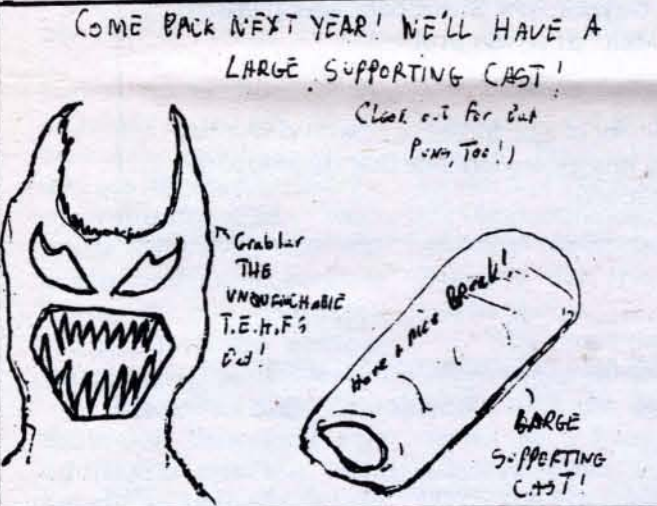 COME BACK NEXT YEAR! WE'LL HAVE A
LARGE SUPPORTING CAST!
out For
Puns, Too!)
THE
UNQUENCHABLE
Have a nice Break!
LARGE
SUPPORTING
CAST!